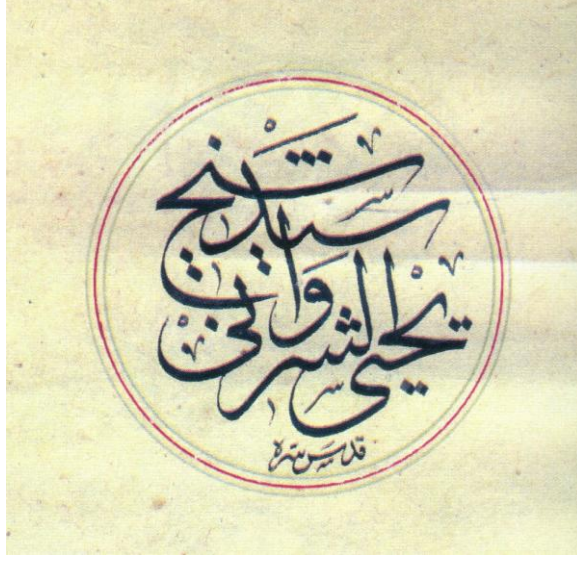 شيخ سيد يحيى الشرواني
قدس سره